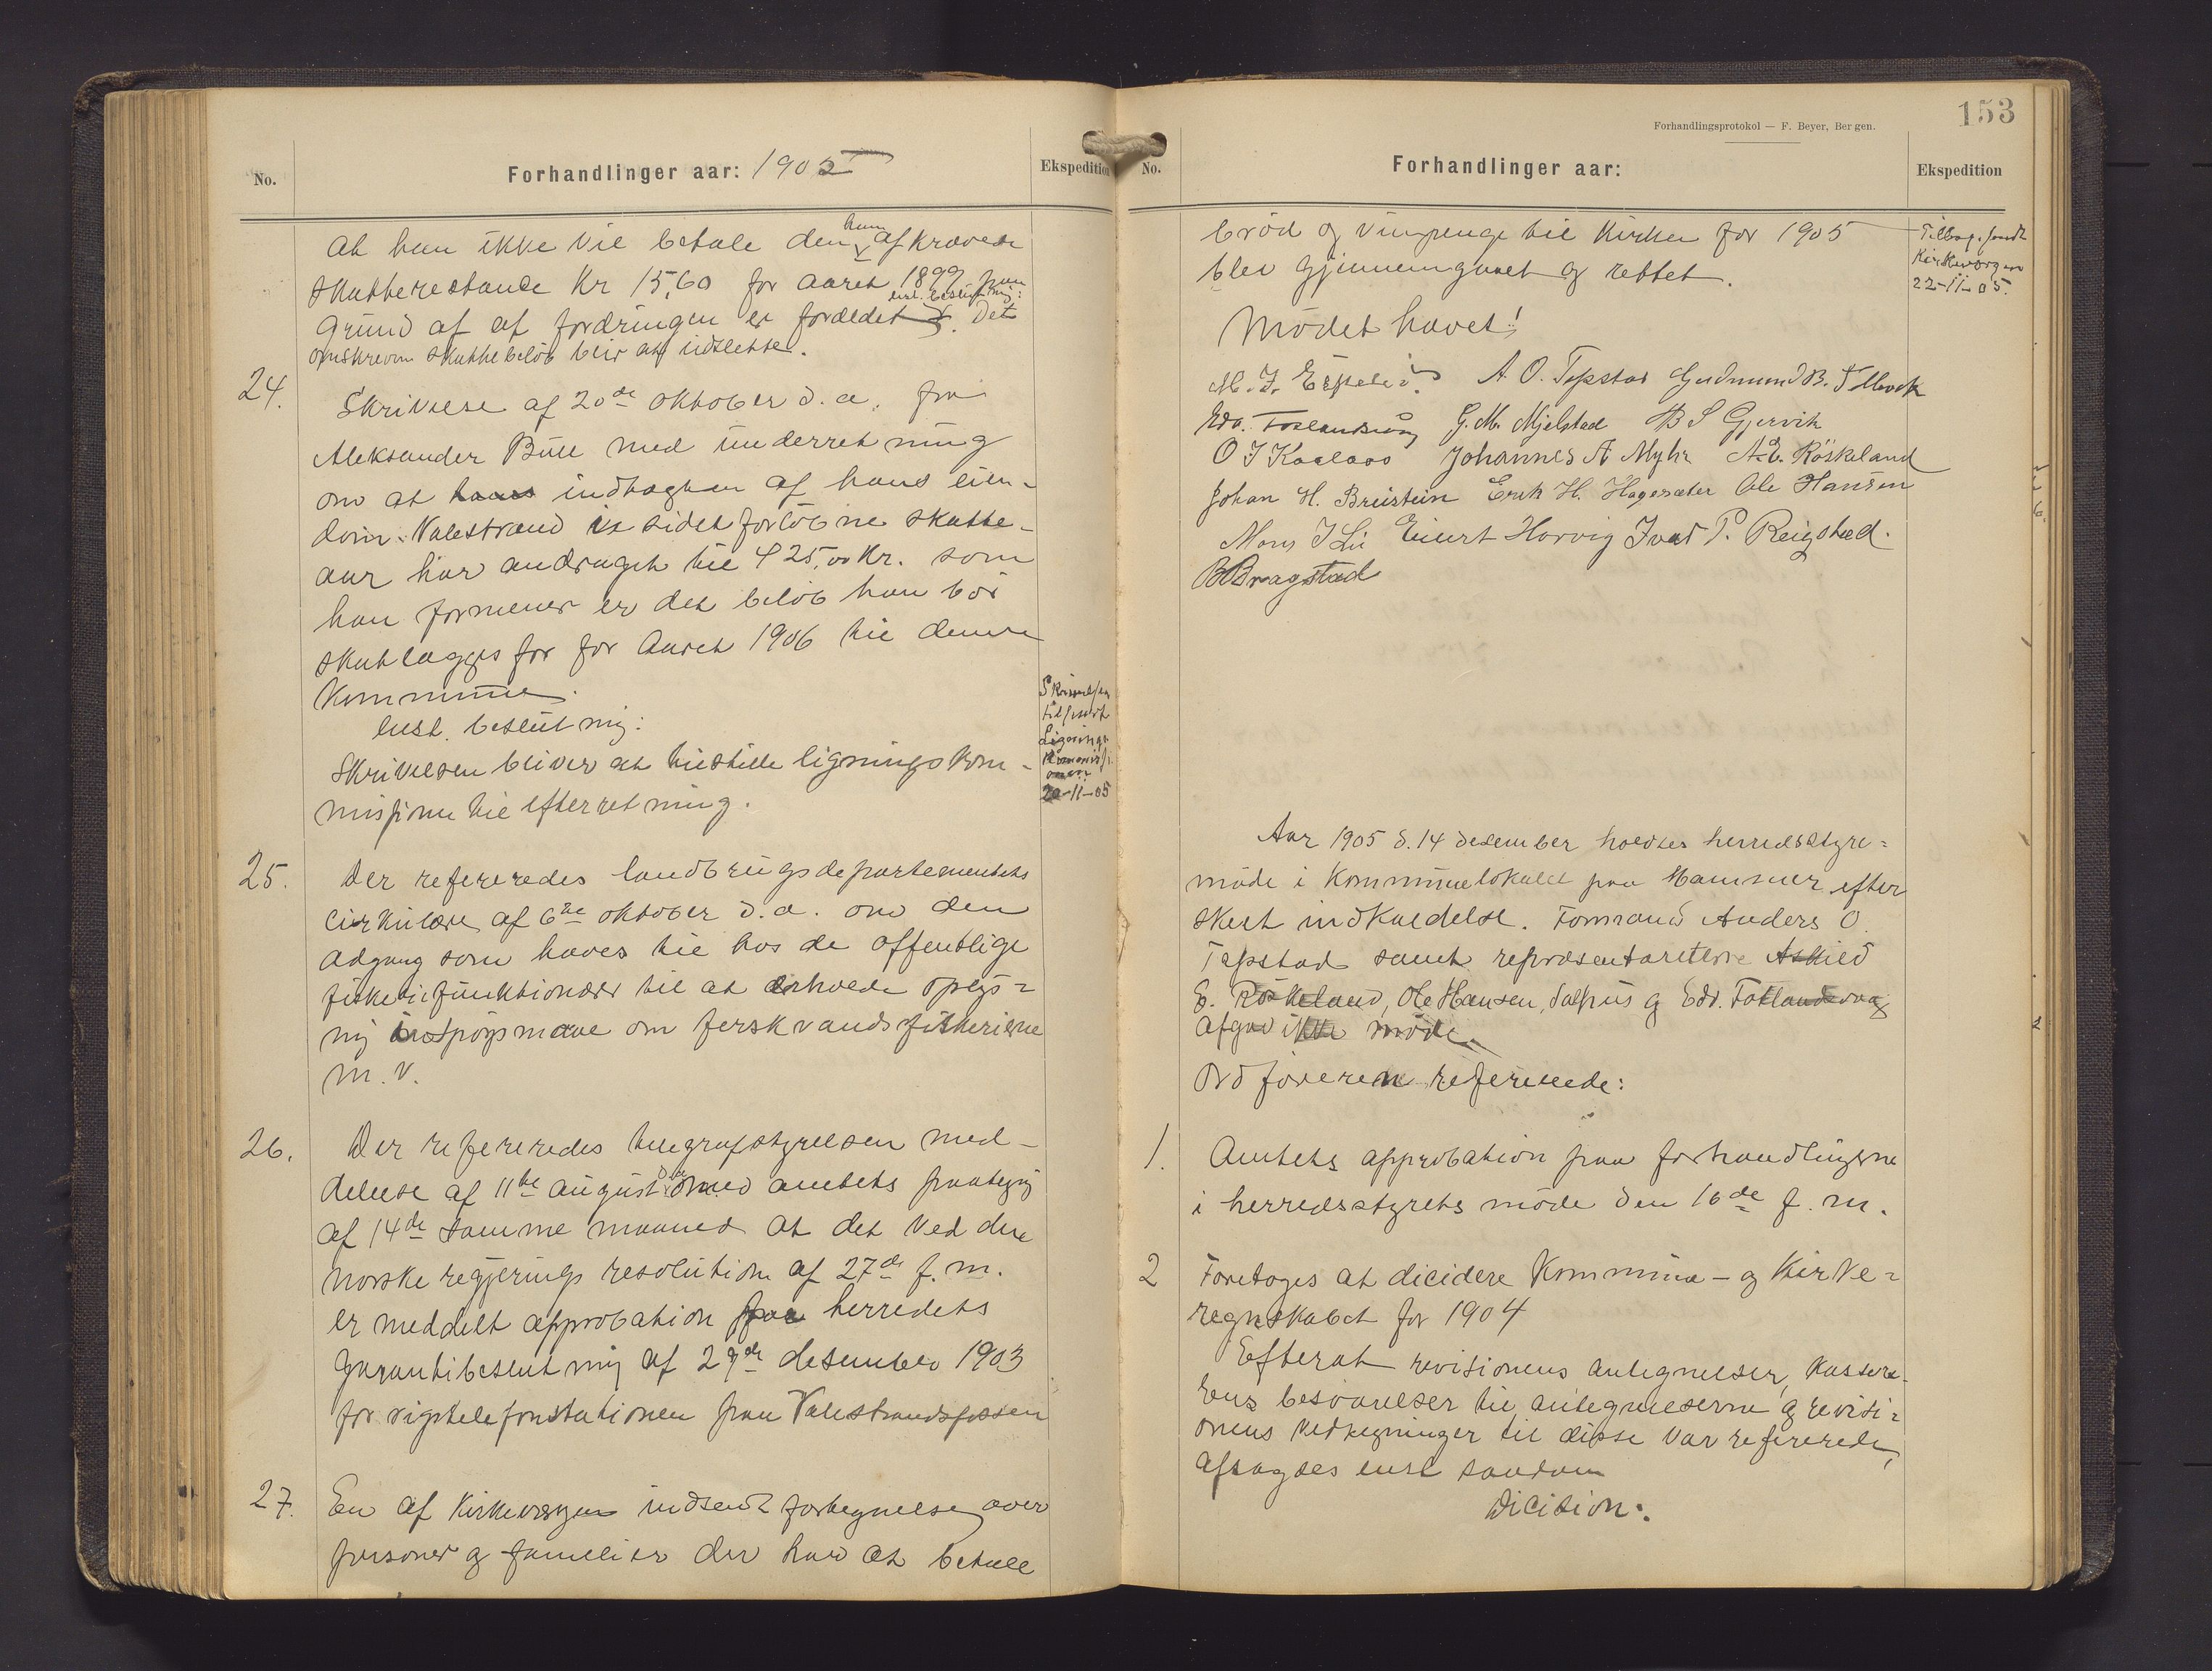 No.
Forhandlinger aar: 1905
Ekspedition
at han ikke vil betale den ham afkrævede
skatterestance Kr 15,60 for aaret 1899 paa
grund af at fordringen er forældet. enst. beslutning: Det
omskrevne skattebeløb blir at udslette.
24.
Skrivelse af 20de oktober d.a. fra
Aleksander Bull med underretning
om at indtægten af hans eien-
dom Valestrand i sidst forløbne skatte-
aar har andraget til 425,00 Kr. som
han formener er det beløb han bør
skatlægges for for aaret 1906 til denne
Kommune.
enst. beslutning:
Skrivelsen bliver at tilstille ligningskom-
missionen til efterretning.
Skrivelsen
tilsendt
Lignings
Kommissi-
onen
20-11-05
25.
Der refereredes landbrugsdepartementets
cirkulære af 6te oktober d.a. om den
adgang som haves til hos de offentlige
fiskerifunktionærer til at erholde oplys-
ning i spørgsmaal om ferskvandsfiskerierne
m.v.
26.
Der refereredes telegrafstyrelsen med-
delelse af 11te august d.a. med amtets paategning
af 14de samme maaned at det ved den
norske regjerings resolution af 27de f.m.
er meddelt approbation paa herredets
garantibeslutning af 29de desember 1903
for rigstelefonstationen paa Valestrandsfossen
27.
En af Kirkevergen indsendt fortegnelse over
personer og familier der har at betale
153
Forhandlingsprotokol — F. Beyer, Bergen.
No.
Forhandlinger aar:
Ekspedition
brød og vinpenge til Kirken for 1905
blev gjennemgaaet og rettet.
Tilbagesendt
Kirkevergen
22-11-05.
Mødet hævet!
A. O. Tepstad Gudmund B.
G. M. Mjelstad B S Gjervik
O J Kaalaas Johannes A Myhr A. E. Röskeland
Johan H. Breistein Erik H. Hagesæter Ole Hansen
Mons J Li Eilert Horvig Ivar P. Reigstad.
B Bragstad
Aar 1905 d. 14 desember holdtes herredsstyre-
møde i Kommunelokalet paa Hammer efter
skeet indkaldelse. Formand Anders O.
Tepstad samt repræsentanterne Askild
E. Röskeland, Ole Hansen, Salhus og Edv. Totlandsvaag
afgav ikke møde.
Ordføreren refererede:
1.
Amtets approbation paa forhandlingerne
i herredsstyrets møde den 16de f.m.
2
Foretoges at dicidere Kommune- og Kirke-
regnskabet for 1904
Efterat revisionens antegnelser, kassere-
rens besvarelser til antegnelserne og revisi-
onens vedtegninger til disse var refererede,
afsagdes enst saadan
Dicision: